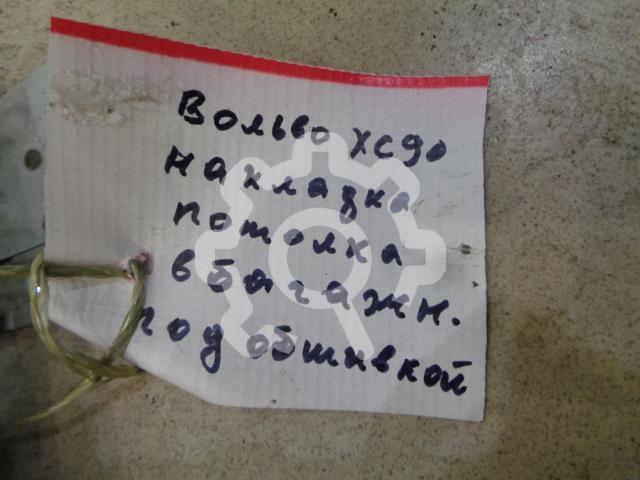 Вольво хс90
накладка
потолка
в багажн.
под обшивкой